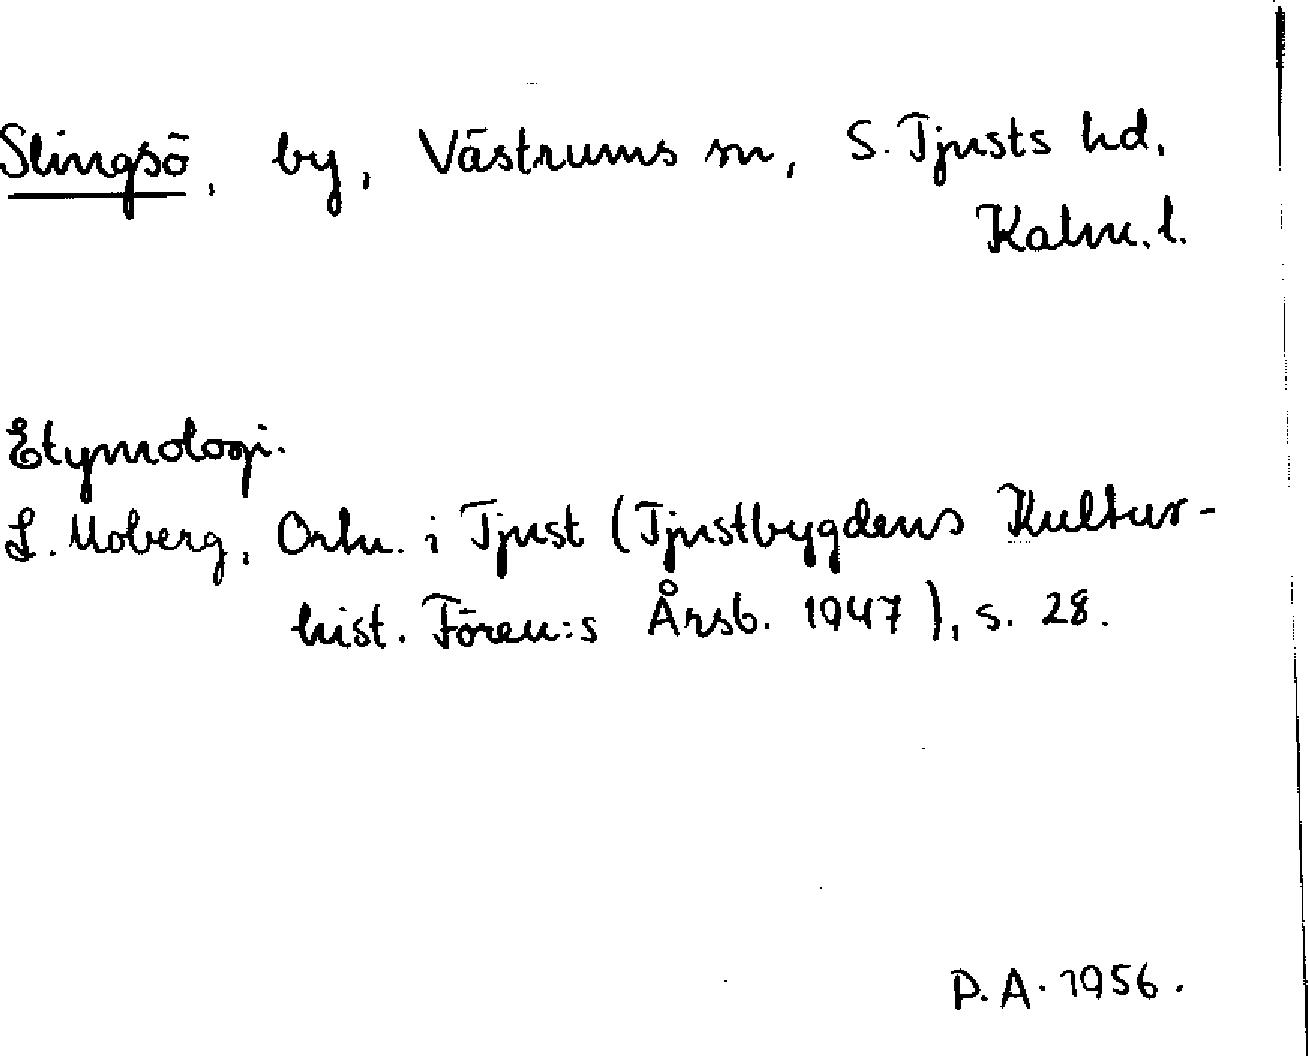 Slingsö, by, Västrums sn, S. Tjusts hd,
Kalm. l.
Etymologi.
L. Moberg, Ortn. i Tjust (Tjustbygdens Kultur-
hist. Fören:s Årsb. 1947), s. 28.
P. A. 1956.